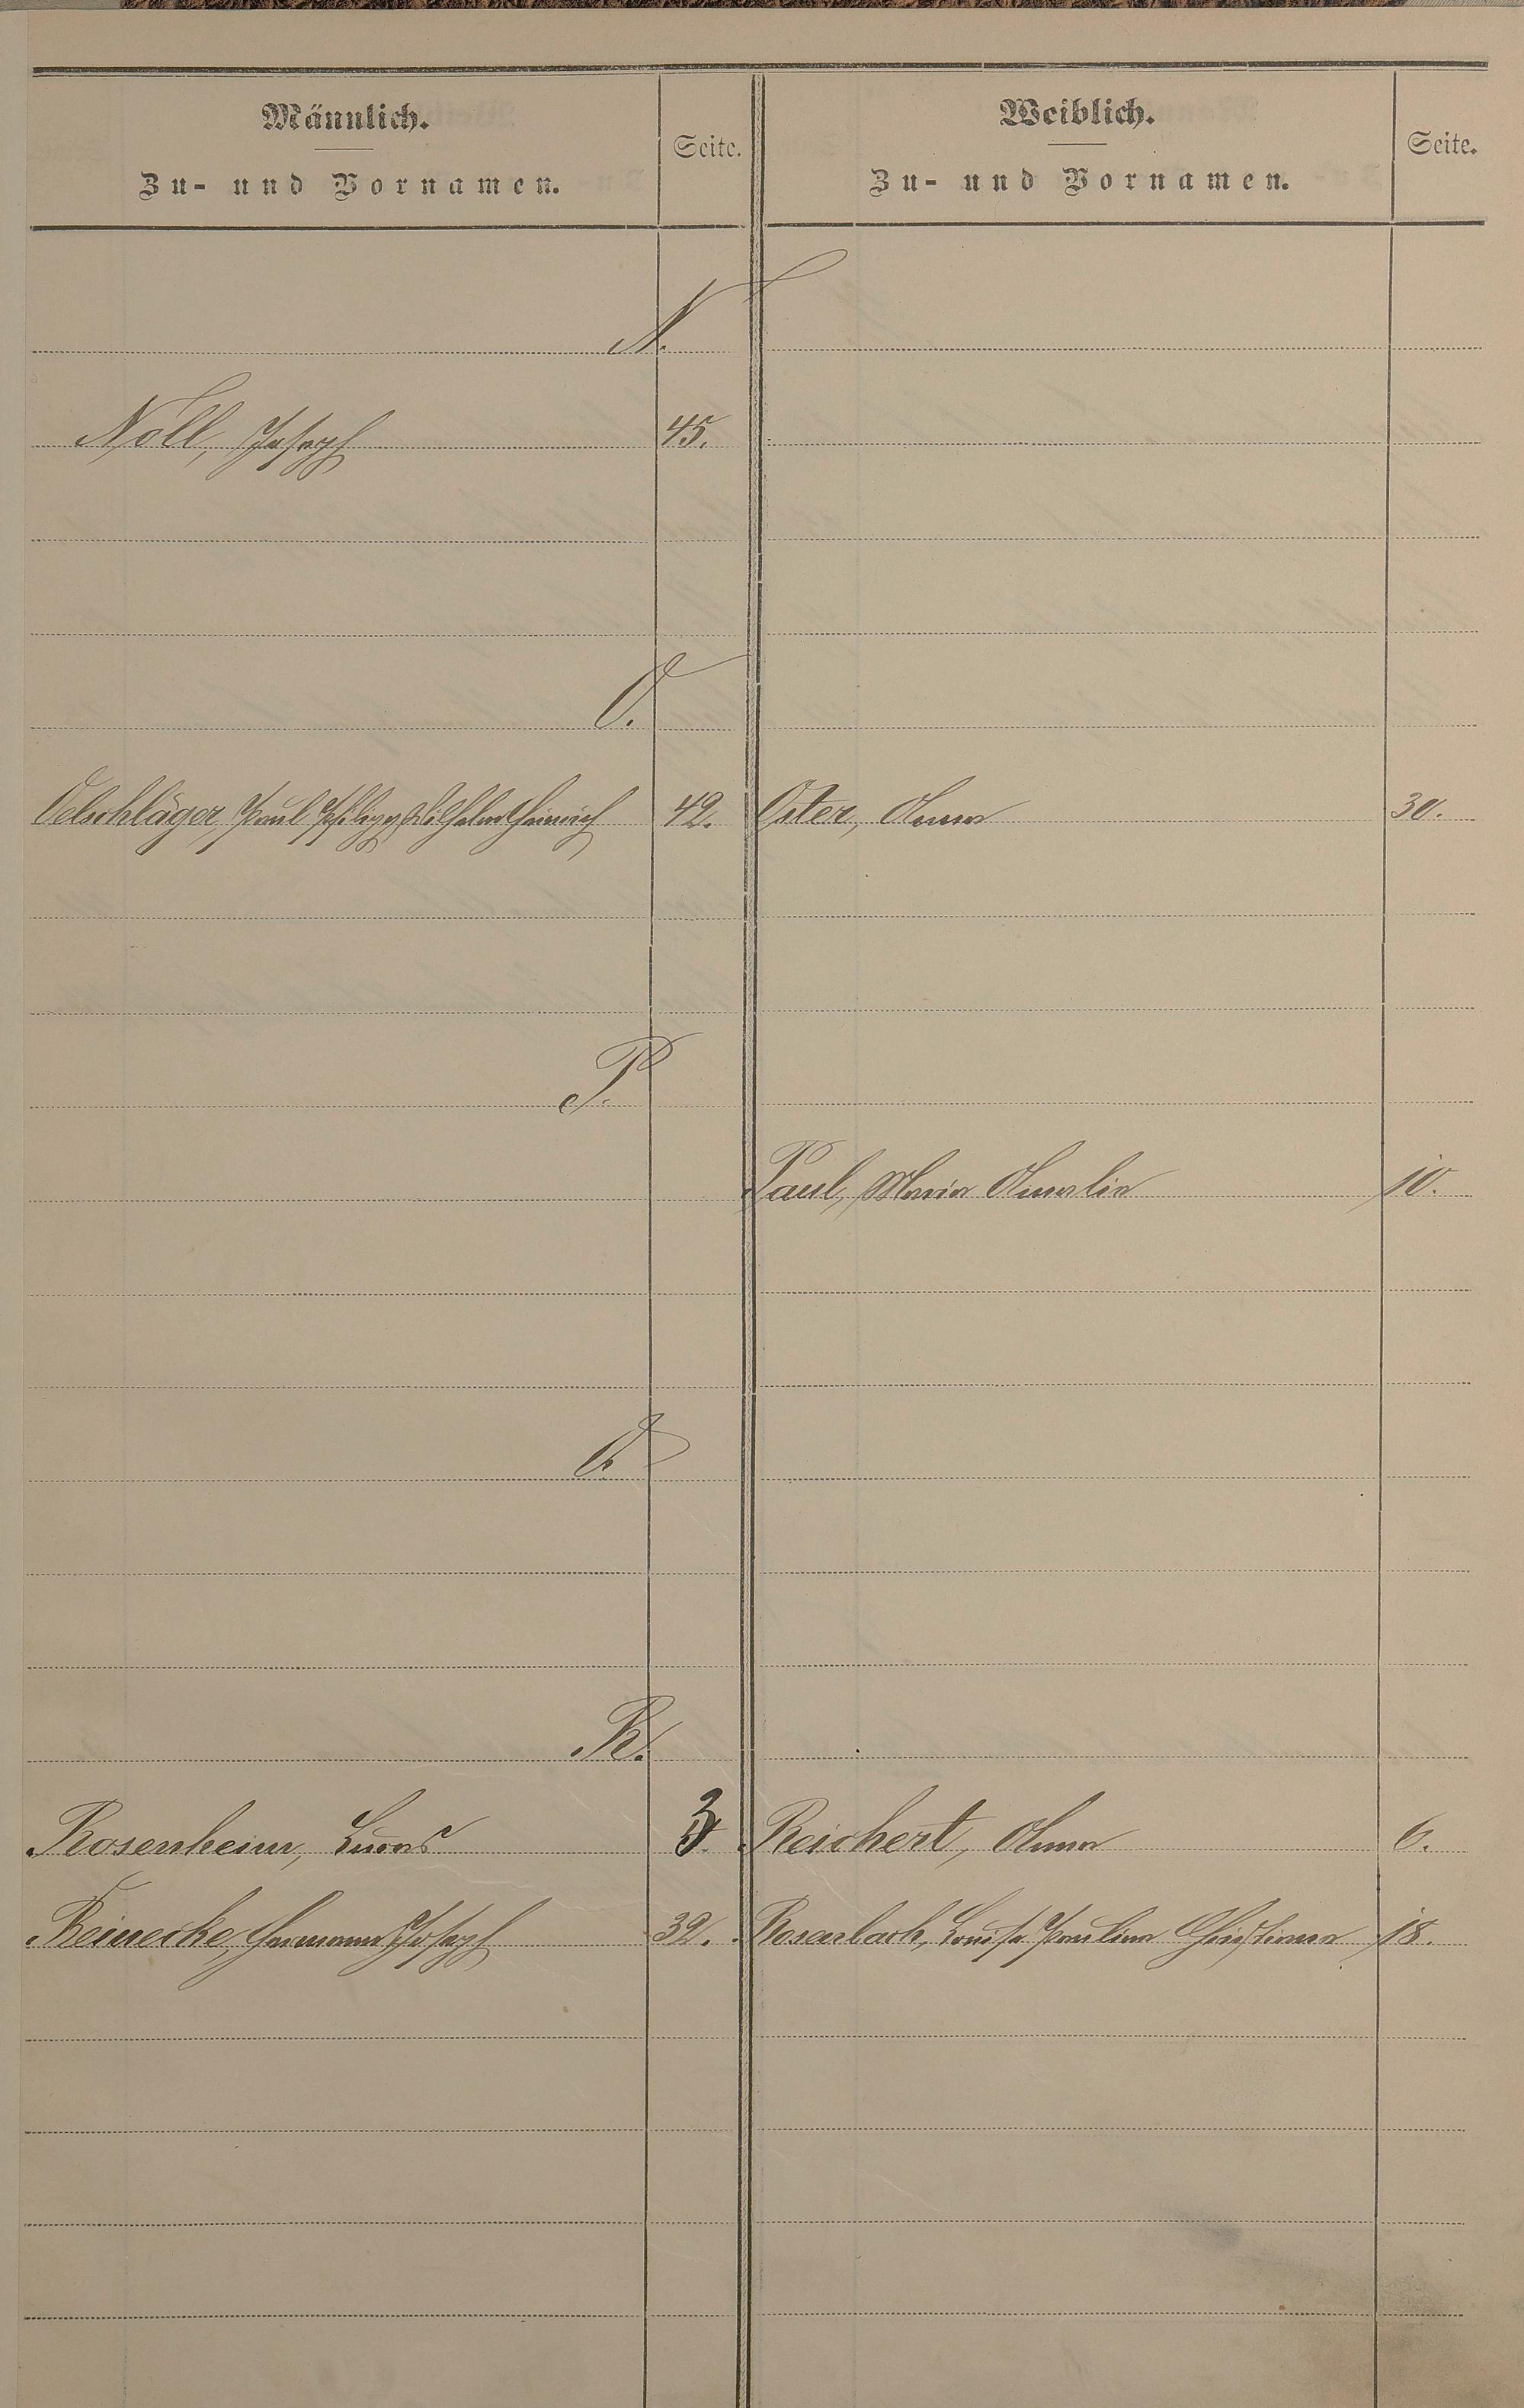 Männlich.
Zu- und Vornamen.
Seite.
Weiblich.
Zu- und Vornamen.
Seite.
N.
Nöll, Joseph 45.
O.
Oelschläger, Paul Philipp Wilhelm Heinrich 42. Oster, Anna 30.
P.
Paul, Maria Amalia 10.
Q.
R.
Rosenheim, 3. Reichert, Anna 6.
Reinecke, Hermann Joseph 32. Rosenbach, Louise Pauline Christiane 18.